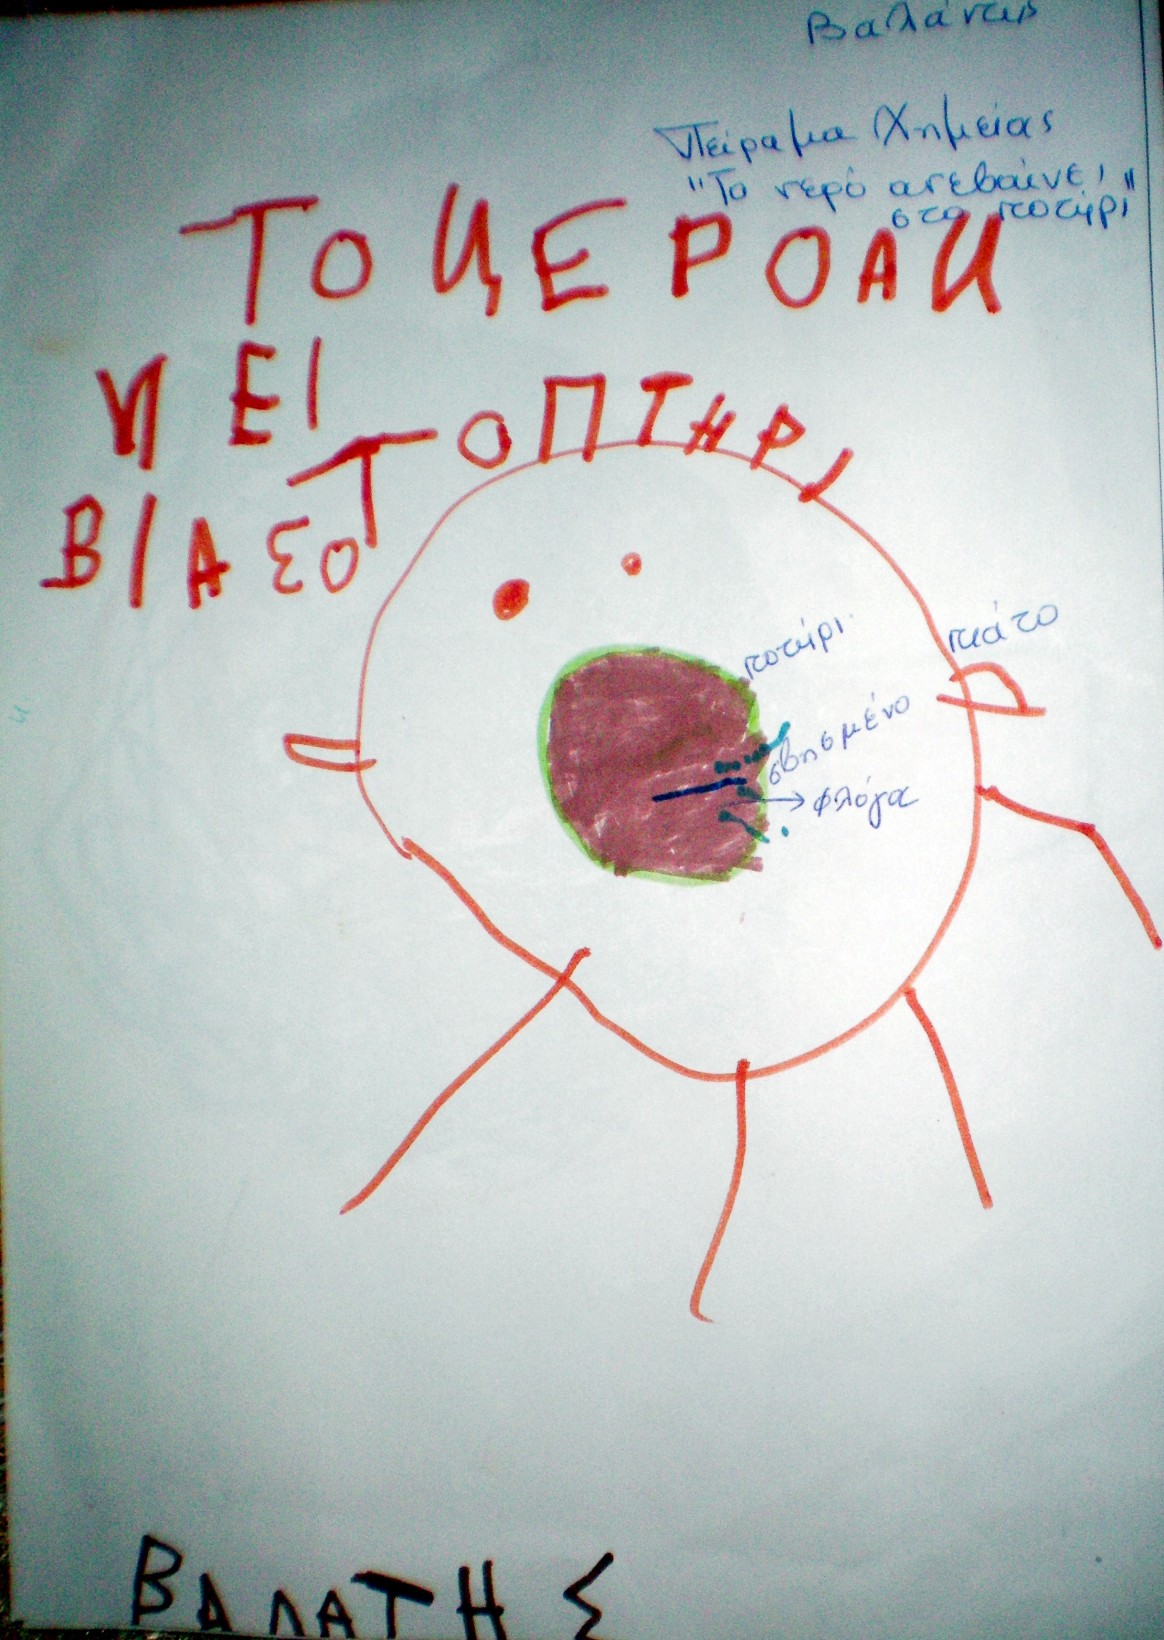 Βαλάντης
Πείραμα Χημείας
"Το νερό ανεβαίνει
στο ποτήρι"
ΤΟ ИΕΡΟΑИ
ИΕΙ
ΤΟΠΤΗΡΙ
ΒΙΑΣΟ
ποτήρι
πιάτο
σβησμένο
φλόγα
ΒΑΛΑΤΗΣ